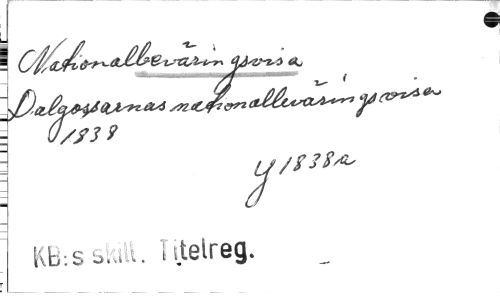 Nationalbeväringsvisa
Dalgossarnas nationalbeväringsvisa
1838
Y 1838a
KB:s skill. Titelreg.